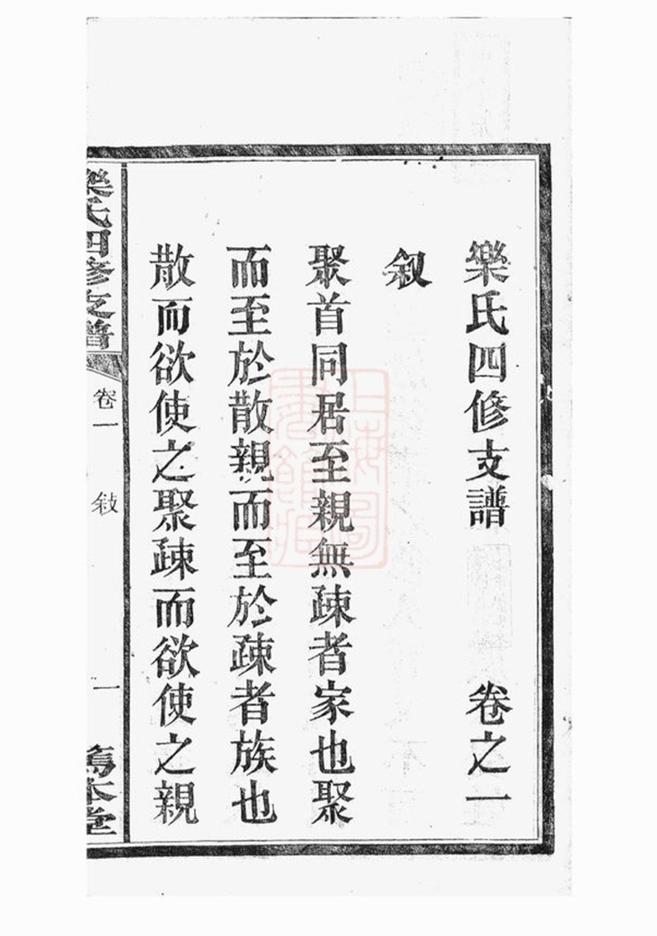 樂氏四修支譜 卷之一
敘
聚首同居至親無疎者家也聚
而至於散親而至於疎者族也
散而欲使之聚疎而欲使之親
樂氏四修支譜 卷一 敘 一 篤本堂